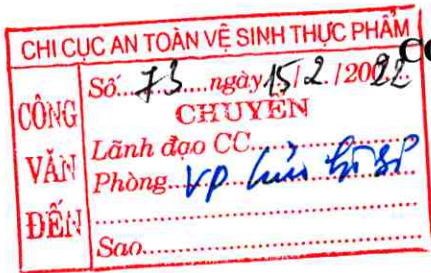 CHI CỤC AN TOÀN VỆ SINH THỰC PHẨM
CÔNG VĂN ĐẾN
Số...73....ngày.15/2./2022..
CHUYỂN
Lãnh đạo CC....................
Phòng..VP lưu hồ sơ
....................................
Sao..............................